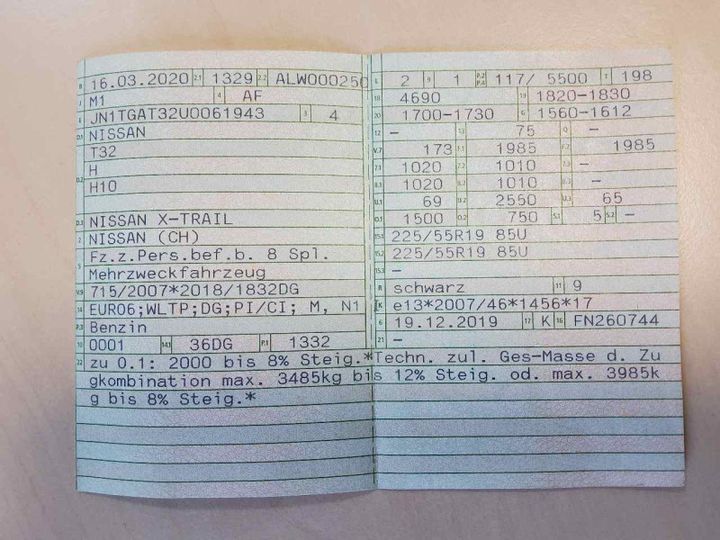 B 16.03.2020 2.1 1329 2.2 ALW000250
J M1 4 AF
E JN1TGAT32U0061943 3 4
D.1 NISSAN
T32
D.2 H
H10
D.3 NISSAN X-TRAIL
2 NISSAN (CH)
5 Fz.z.Pers.bef.b. 8 Spl.
Mehrzweckfahrzeug
V.9 715/2007*2018/1832DG
14 EURO6;WLTP;DG;PI/CI; M, N1
P.3 Benzin
10 0001 14.1 36DG P.1 1332
L 2 9 1 P.2 P.4 117/ 5500 T 198
18 4690 19 1820-1830
20 1700-1730 G 1560-1612
12 - 13 75 Q -
V.7 173 F.1 1985 F.2 1985
7.1 1020 7.2 1010 7.3 -
8.1 1020 8.2 1010 8.3 -
U.1 69 U.2 2550 U.3 65
O.1 1500 O.2 750 S.1 5 S.2 -
15.1 225/55R19 85U
15.2 225/55R19 85U
15.3 -
R schwarz 11 9
K e13*2007/46*1456*17
6 19.12.2019 17 K 16 FN260744
21 -
22 zu 0.1: 2000 bis 8% Steig.*Techn. zul. Ges-Masse d. Zu
gkombination max. 3485kg bis 12% Steig. od. max. 3985k
g bis 8% Steig.*